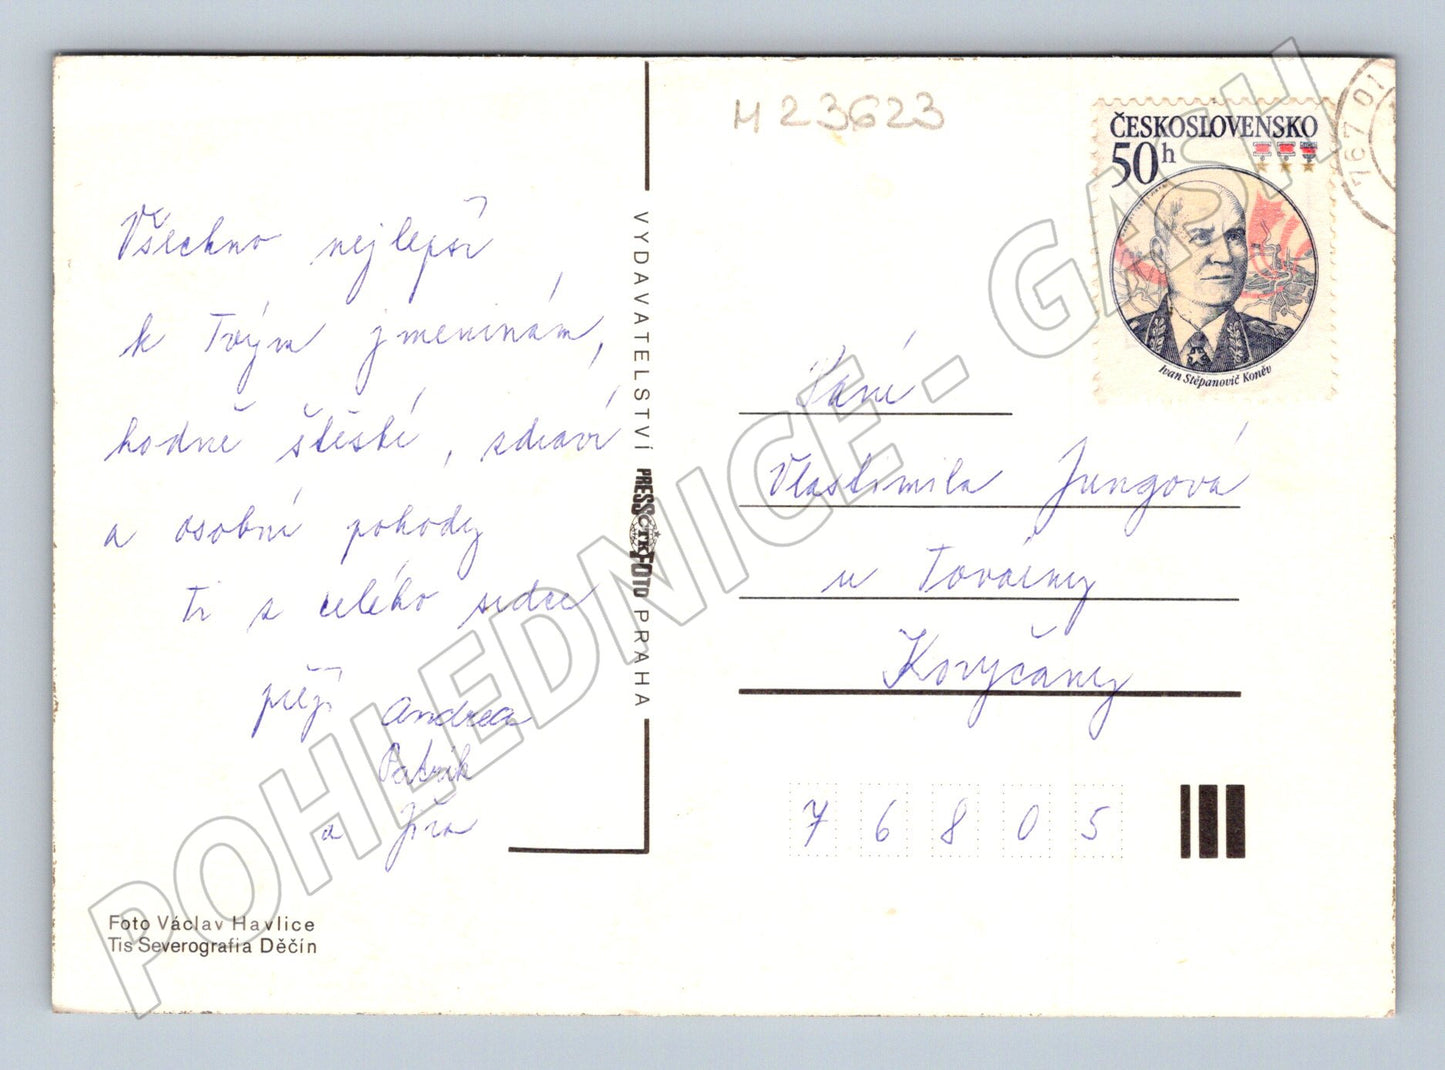 M 23623
ČESKOSLOVENSKO
50h
Ivan Stěpanovič Koněv
767 01
Všechno nejlepší
k Tvým jmeninám,
hodně štěstí, zdraví
a osobní pohody
Ti z celého srdce
přejí Andrea
Patrik
a Jíra
Foto Václav Havlice
Tis Severografia Děčín
VYDAVATELSTVÍ PRESSFOTO PRAHA
ČTK
Paní
Vlastimila Jungová
u Továrny
Koryčany
76805
POHLEDNICE - GASH